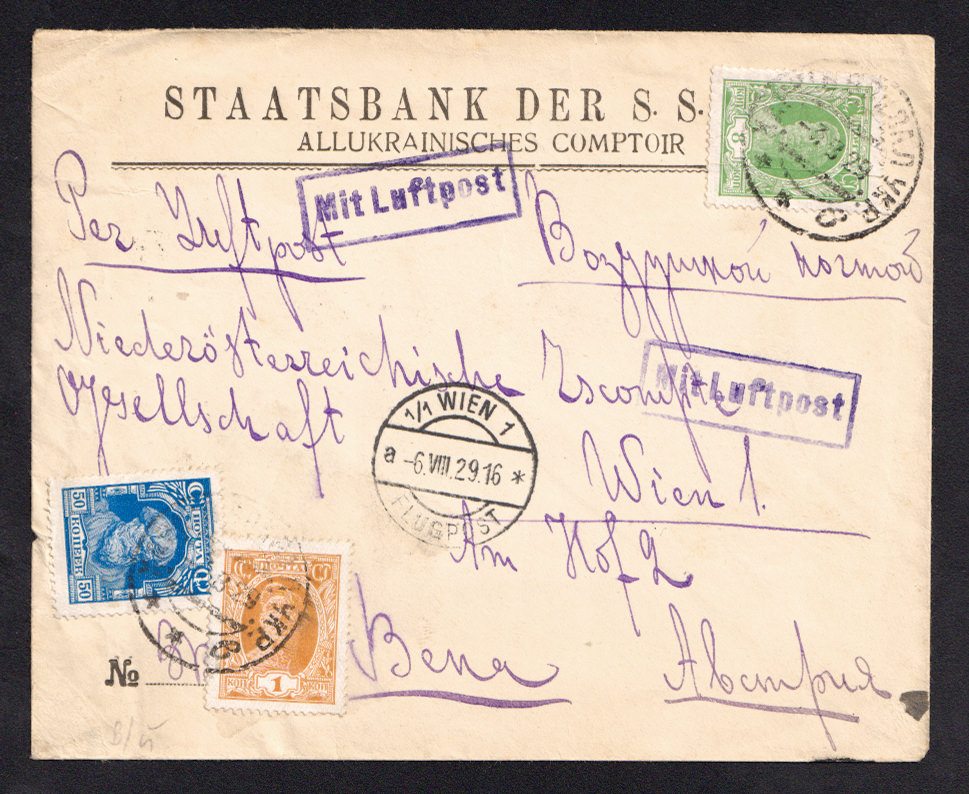 STAATSBANK DER S. S.
ALLUKRAINISCHES COMPTOIR
Mit Luftpost
Per Luftpost
Воздушной почтой
Niederösterreichische Escompte
Gesellschaft
Mit Luftpost
1/1 WIEN 1
a -6.VIII.29.16 *
FLUGPOST
Wien 1.
Am Hof 2
Вена
Австрия
№
ПОЧТА
50 КОПЕЕК 50
ПОЧТА
КОП 1 КОП
8
УКР.
УКР.